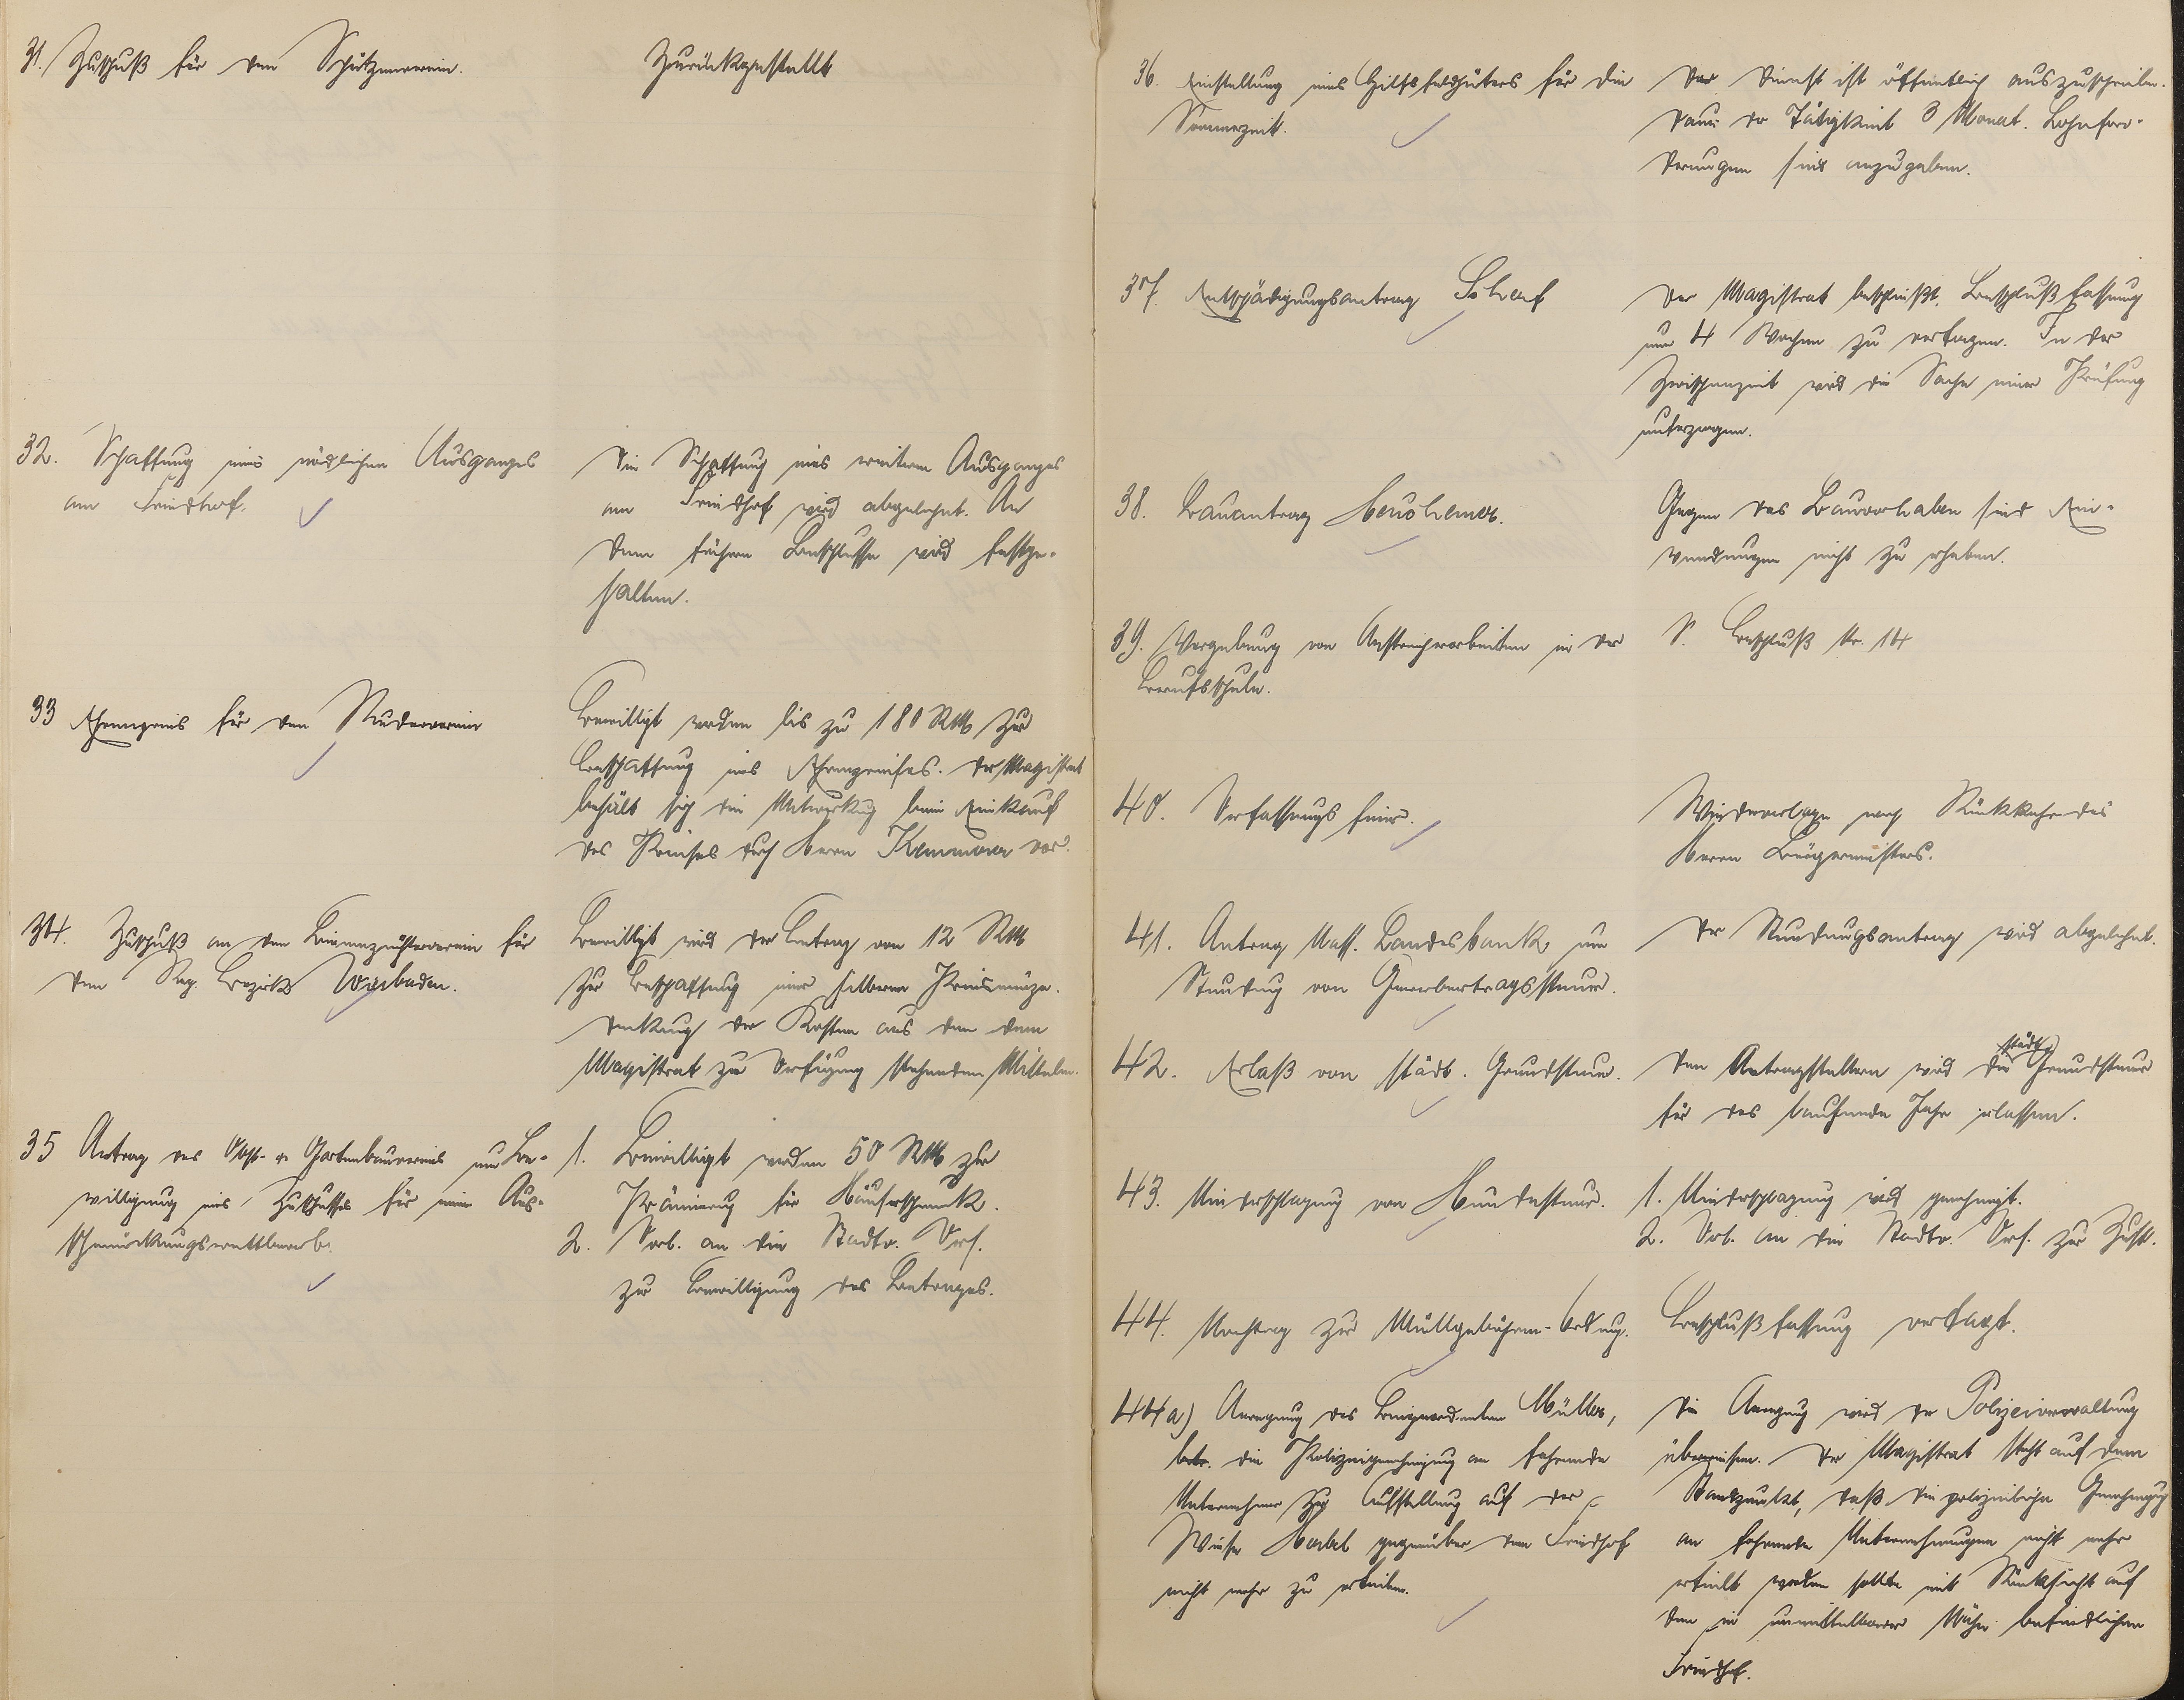 31. Zuschuß für den Schützenverein.
Zurückgestellt
32. Schaffung eines nördlichen Ausganges
am Friedhof.
Die Schaffung eines weiteren Ausganges
am Friedhof wird abgelehnt. An
dem früheren Beschlusse wird festge-
halten.
33 Ehrenpreis für den Ruderverein
Bewilligt werden bis zu 180 RM zur
Beschaffung eines Ehrenpreises. Der Magistrat
behält sich die Mitwirkung beim Einkauf
des Preises durch Herrn Kemmerer vor.
34. Zuschuß an den Bienenzüchterverein für
den Reg. Bezirk Wiesbaden.
Bewilligt wird der Betrag von 12 RM
zur Beschaffung einer silbernen Preismünze.
Deckung der Kosten aus den dem
Magistrat zu Verfügung stehenden Mitteln.
35 Antrag des Obst- u. Gartenbauvereins um Be-
willigung eines Zuschusses für einen Aus-
schmückungswettbewerb.
1. Bewilligt werden 50 RM zur
Prämierung für Häuserschmuck.
2. Vorl. an die Stadtv. Vers.
zur Bewilligung des Betrages.
36. Einstellung eines Hilfsfeldhüters für die
Sommerzeit.
Der Dienst ist öffentlich auszuschreiben.
Dauer der Tätigkeit 3 Monat. Lohnfor-
derungen sind anzugeben.
37. Entschädigungsantrag
Der Magistrat beschließt, Beschlußfassung
um 4 Wochen zu vertagen. In der
Zwischenzeit wird die Sache einer Prüfung
unterzogen.
38. Bauantrag
Gegen das Bauvorhaben sind Ein-
wendungen nicht zu erheben.
39. Vergebung von Anstreicherarbeiten in der
Berufsschule.
S. Beschluß Nr. 14
40. Verfassungsfeier.
Wiedervorlage nach Rückkehr des
Herrn Bürgermeisters.
41. Antrag Nass. Landesbank um
Stundung von Gewerbertragssteuer.
Der Stundungsantrag wird abgelehnt.
42. Erlaß von städt. Grundsteuer.
Den Antragstellern wird die städt. Grundsteuer
für das laufende Jahr erlassen.
43. Niederschlagung von Hundesteuer.
1. Niederschlagung wird genehmigt.
2. Vorl. an die Stadtv. Vers. zur Zust.
44. Nachtrag zur Müllgebühren-Ordnung.
Beschlußfassung vertagt.
44a) Anregung des Beigeordneten Müller,
betr. die Polizeigenehmigung an fahrende
Unternehmer zur Aufstellung auf der
Wiese gegenüber dem Friedhof
nicht mehr zu erteilen.
Die Anregung wird der Polizeiverwaltung
überwiesen. Der Magistrat steht auf dem
Standpunkt, daß die polizeiliche Genehmigung
an fahrende Unternehmungen nicht mehr
erteilt werden sollte mit Rücksicht auf
den in unmittelbarer Nähe befindlichen
Friedhof.